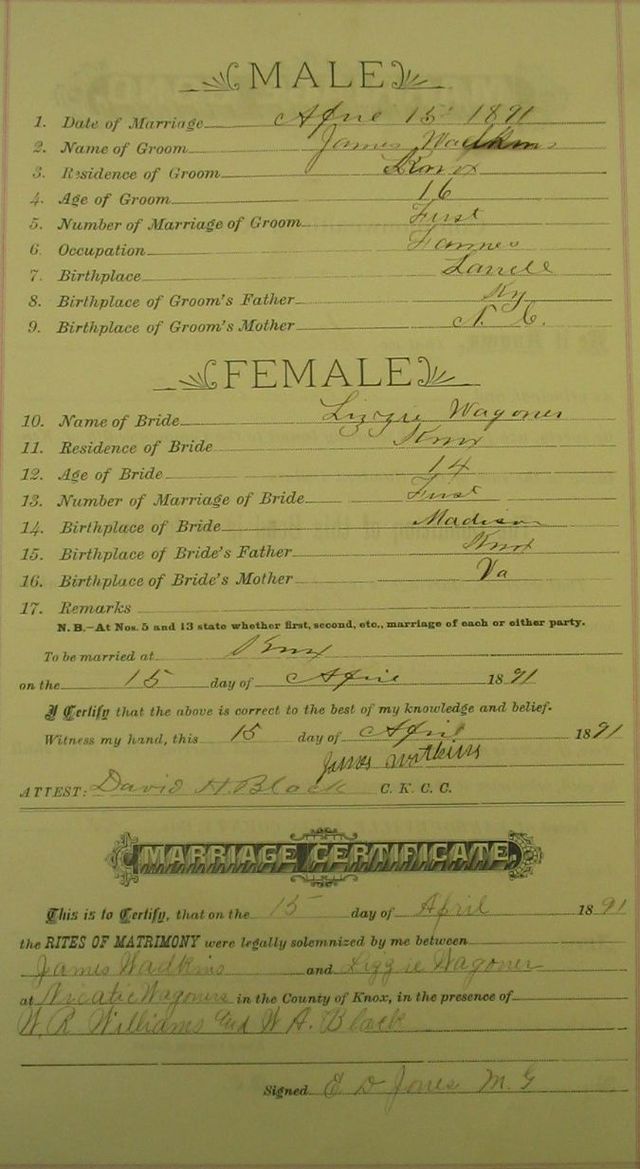 MALE
1. Date of Marriage April 15 1891
2. Name of Groom James Wadkins
3. Residence of Groom Knox
4. Age of Groom 16
5. Number of Marriage of Groom First
6. Occupation Farmer
7. Birthplace Larrell
8. Birthplace of Groom's Father Ky
9. Birthplace of Groom's Mother N. C.
FEMALE
10. Name of Bride Lizzie Wagoner
11. Residence of Bride Knox
12. Age of Bride 14
13. Number of Marriage of Bride First
14. Birthplace of Bride Madison
15. Birthplace of Bride's Father Knox
16. Birthplace of Bride's Mother Va
17. Remarks
N. B.—At Nos. 5 and 13 state whether first, second, etc., marriage of each or either party.
To be married at Knox
on the 15 day of April 1891
I Certify that the above is correct to the best of my knowledge and belief.
Witness my hand, this 15 day of April 1891
James Watkins
ATTEST: David H. Black C. K. C. C.
MARRIAGE CERTIFICATE.
This is to Certify, that on the 15 day of April 1891
the RITES OF MATRIMONY were legally solemnized by me between
James Wadkins and Lizzie Wagoner
at Wagoners in the County of Knox, in the presence of
W. R. Williams and W A. Black
Signed E D Jones M. G